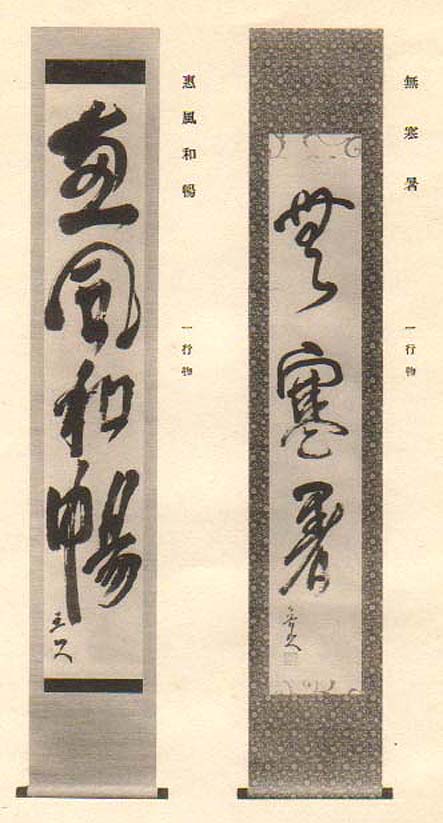 無寒暑
一行物
無寒暑
惠風和暢
一行物
惠風和暢